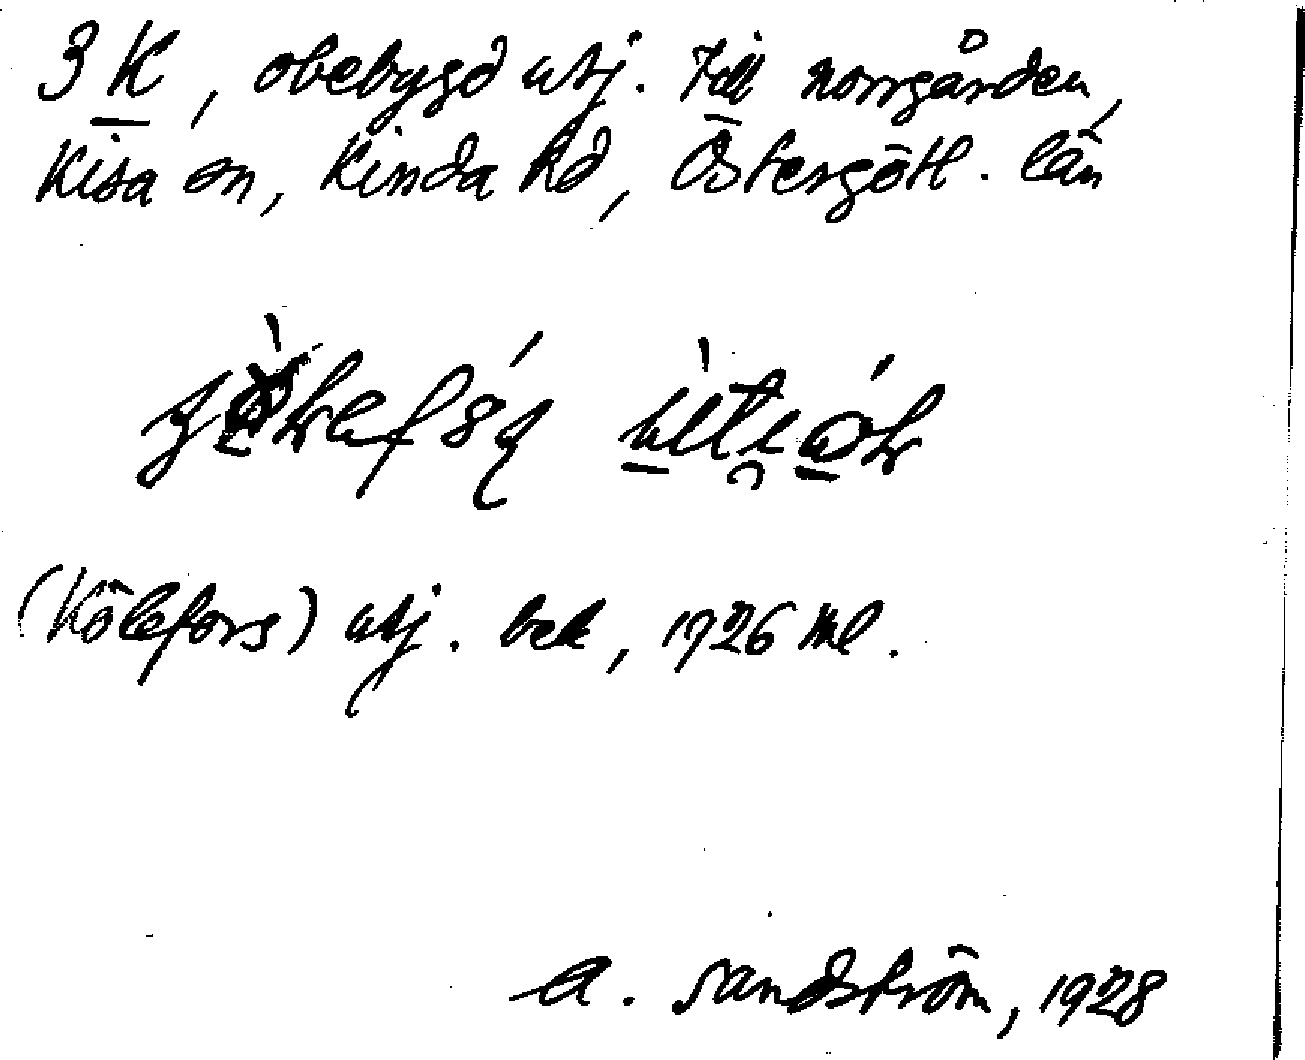 3 K, obebygd utj. till Norrgården,
Kisa sn, Kinda hd, Östergötl. län
(Kölefors) utj. bek, 1726 Ml.
A. Sandström, 1928